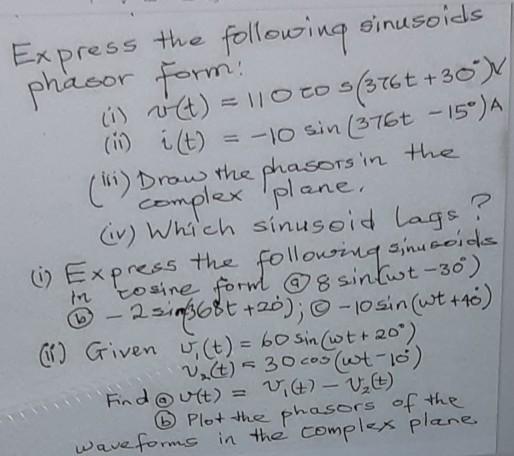 Express the following sinusoids
phasor form:
(i) v(t) = 110 cos(376t + 30°)V
(ii) i(t) = -10 sin(376t - 15°)A
(iii) Draw the phasors in the
complex plane.
(iv) Which sinusoid lags?
(i) Express the following sinusoids
in cosine form (a) 8 sin(wt - 30°)
(b) - 2 sin(368t + 20°); (c) -10 sin(wt + 40°)
(ii) Given v₁(t) = 60 sin(wt + 20°)
v₂(t) = 30 cos(wt - 10°)
Find (a) v(t) = v₁(t) - v₂(t)
(b) Plot the phasors of the
waveforms in the complex plane